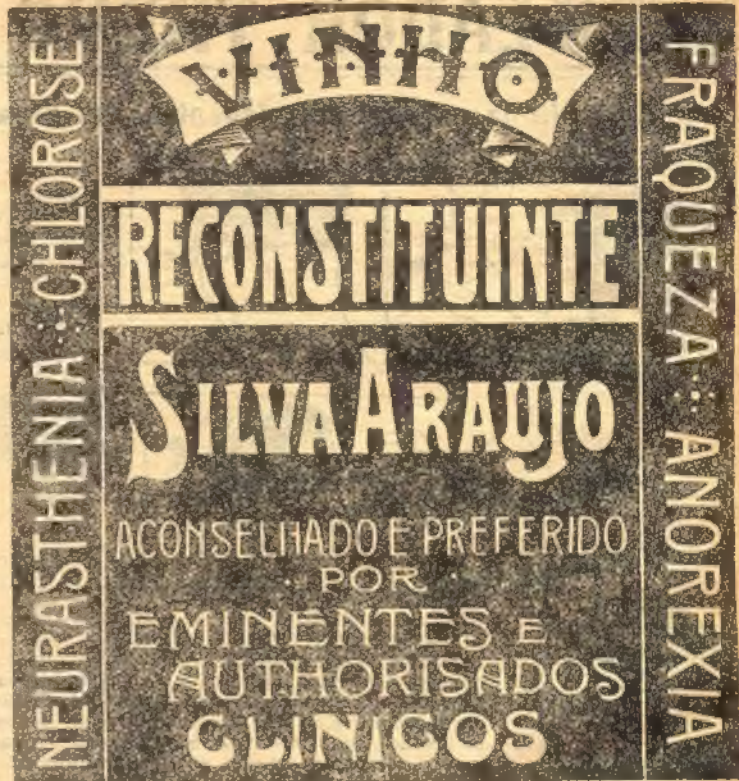 NEURASTHENIA ∴ CHLOROSE
VINHO
RECONSTITUINTE
SILVA ARAUJO
ACONSELHADO E PREFERIDO
POR
EMINENTES E
AUTHORISADOS
CLINICOS
FRAQUEZA ∴ ANOREXIA